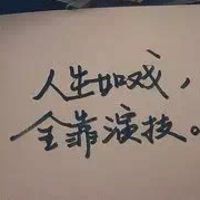 人生如戏，
全靠演技。